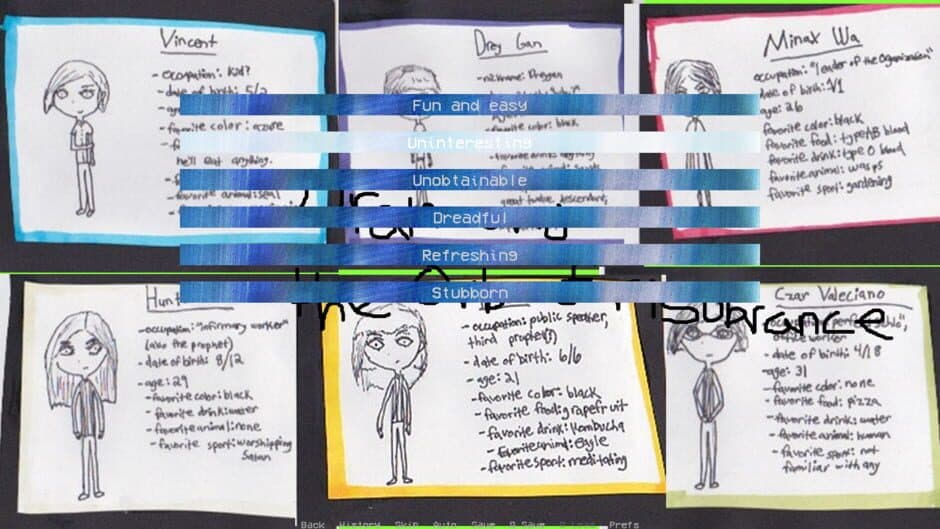 Vincent
- occupation: kid?
- date of birth: 5/2
- favorite color: azure
he'll eat anything.
- favorite animal: seal
Drey Gan
- nickname: Dreygan
favorite color: black
great twelve, descendant,
Minax Wa
occupation: "leader of the organization"
date of birth: 1/1
age: 26
favorite color: black
favorite food: type AB blood
favorite drink: type O blood
favorite animal: wasps
favorite sport: gardening
Fun and easy
Uninteresting
Unobtainable
Dreadful
Refreshing
Stubborn
the
Hunt
- occupation: "infirmary worker"
(also the prophet)
- date of birth: 8/12
- age: 29
- favorite color: black
- favorite drink: water
- favorite animal: none
- favorite sport: worshipping
Satan
- occupation: public speaker,
third prophet(?)
- date of birth: 6/6
- age: 21
- favorite color: black
- favorite food: grapefruit
- favorite drink: Kombucha
- favorite animal: Eagle
- favorite sport: meditating
Czar Valeciano
office worker
- date of birth: 4/18
- age: 31
- favorite color: none
- favorite food: pizza
- favorite drink: water
- favorite animal: human
- favorite sport: not
familiar with any
Back History Skip Auto Save Q.Save Prefs